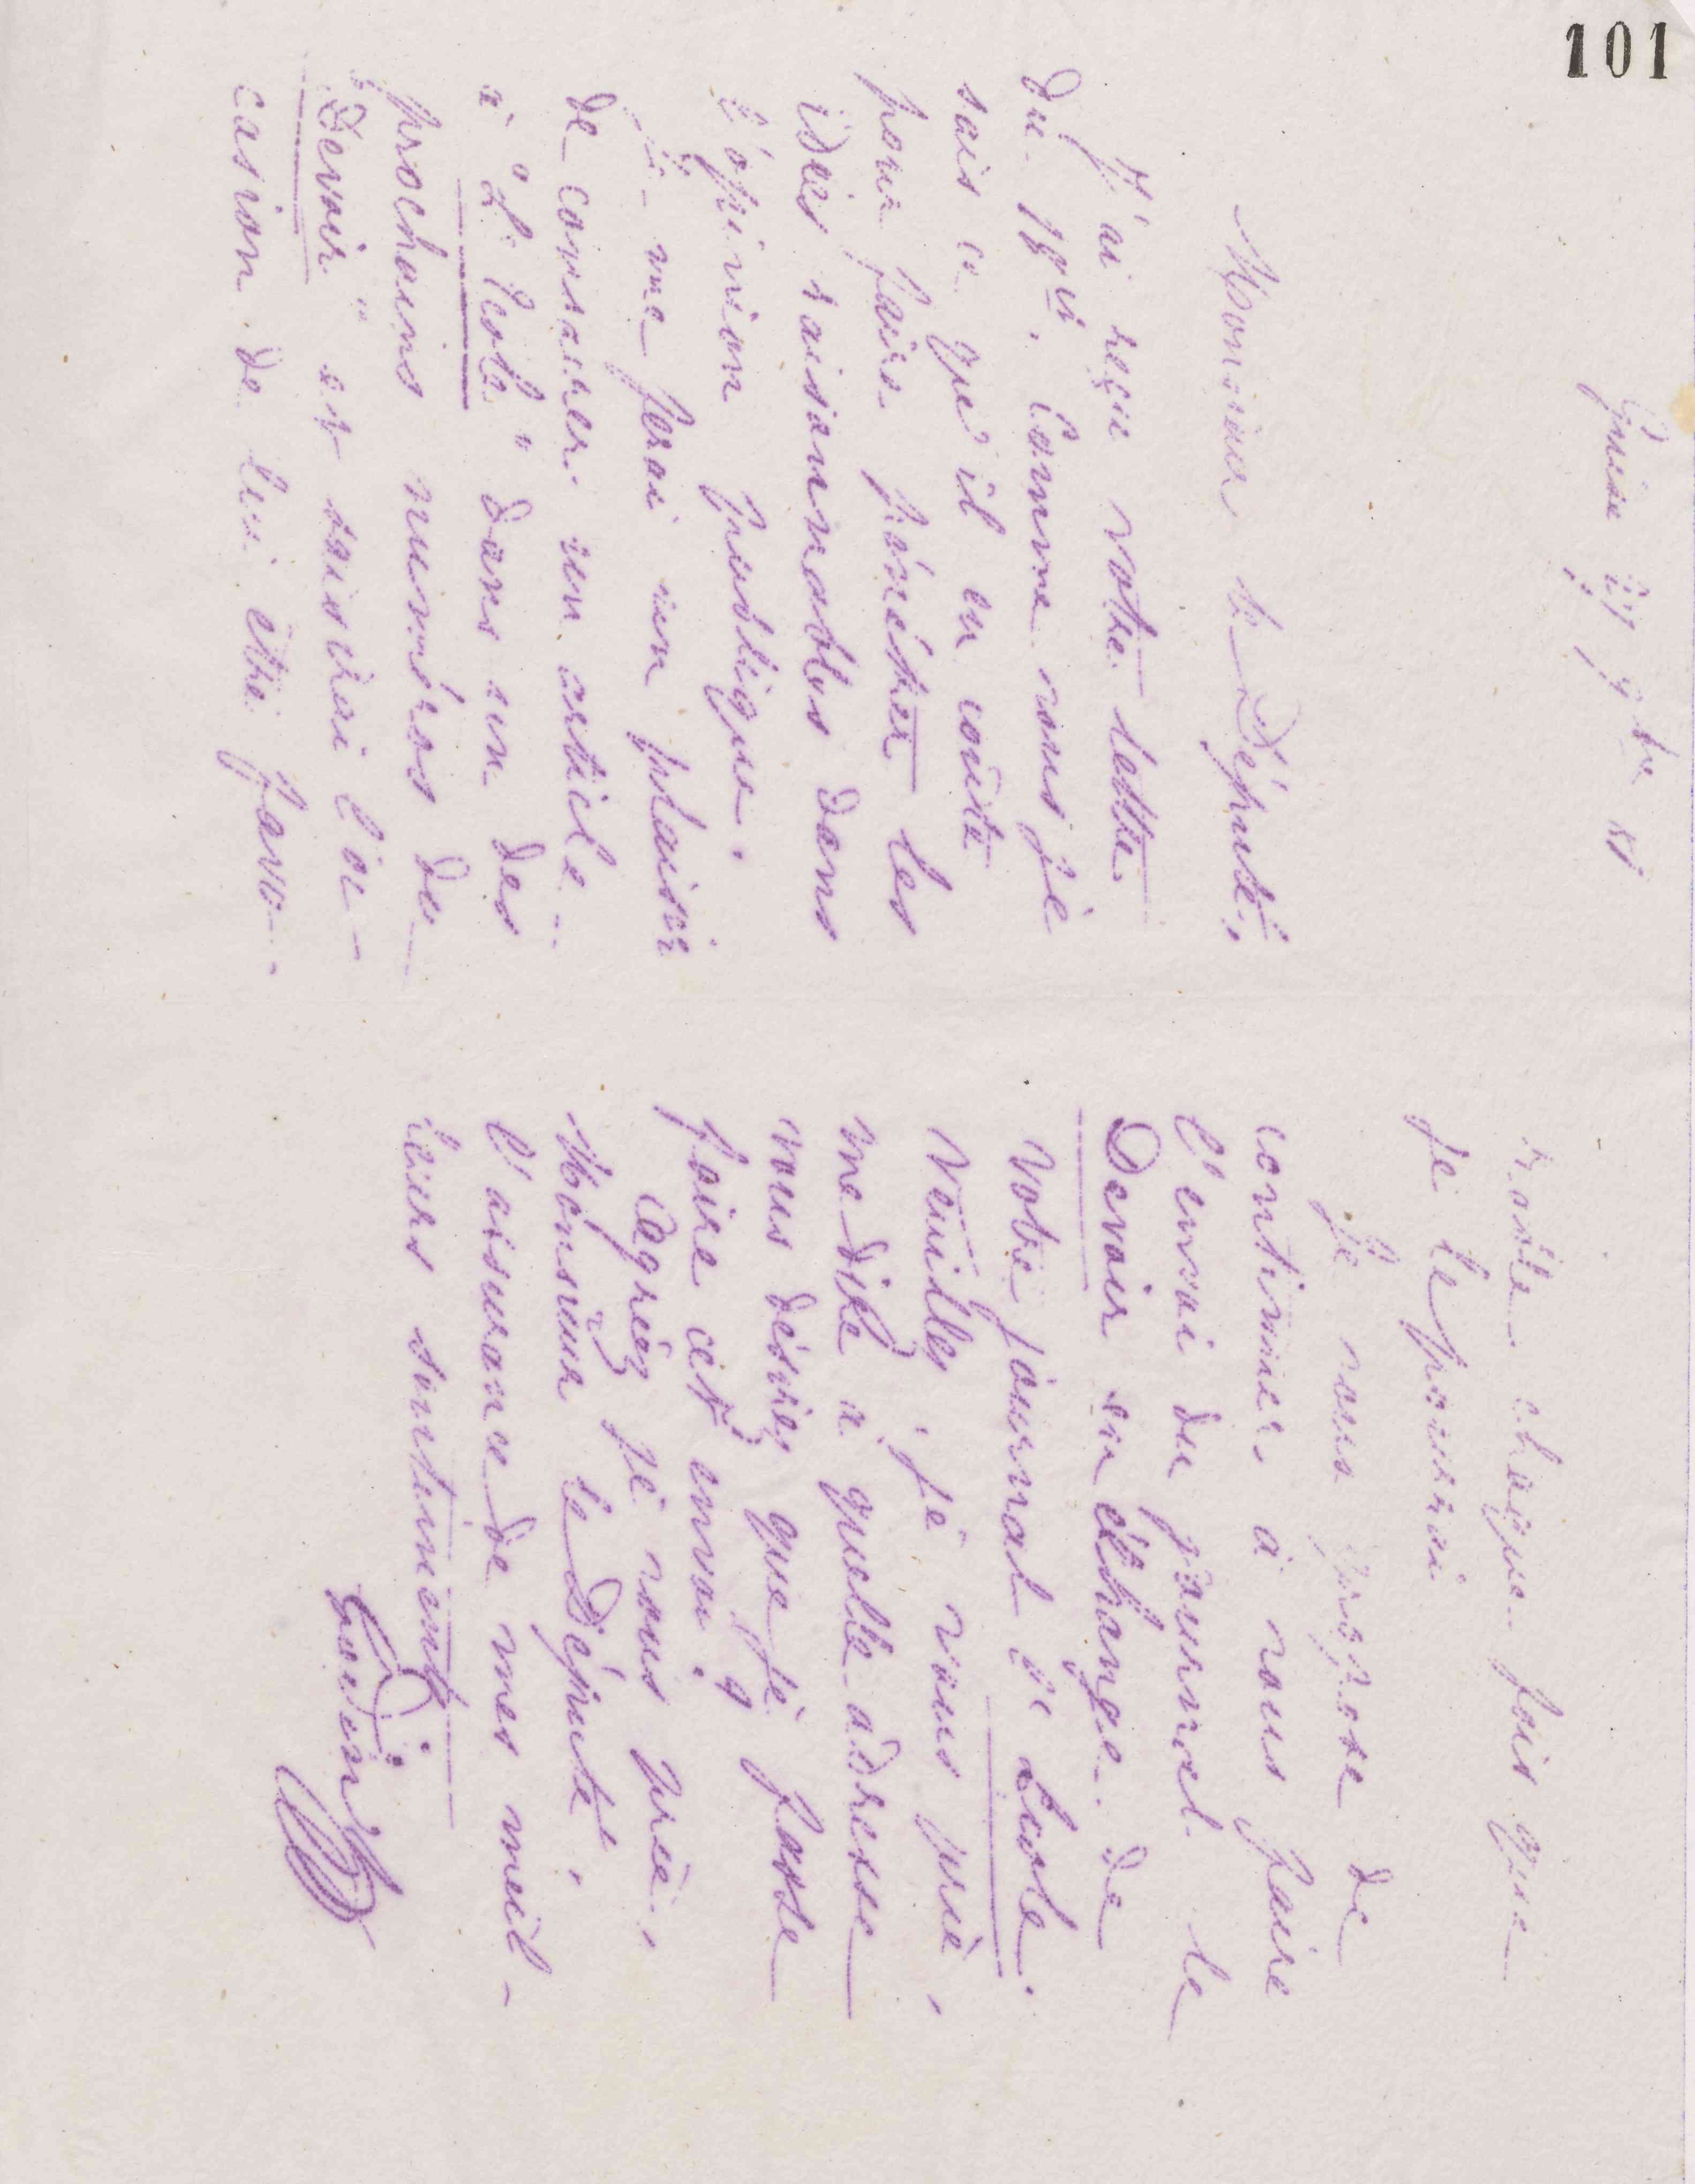 101
Guise 27 9bre 81
Monsieur le Député,
J'ai reçu votre lettre
du 18 ct. Comme vous je
sais ce qu'il en coûte
pour faire pénétrer les
idées raisonnables dans
l'opinion publique.
Je me ferai un plaisir
de consacrer un article
à "L'Ecole" dans un des
prochains numéros du
"Devoir" et saisirai l'oc-
casion de lui être favo-
rable chaque fois que
je le pourrai
Je vous propose de
continuer à vous faire
l'envoi du journal le
Devoir en échange de
votre journal L'Ecole.
Veuillez, je vous prie,
me dire à quelle adresse
vous désirez que je fasse
faire cet envoi.
Agréez je vous prie,
Monsieur le Député,
l'assurance de mes meil-
leurs sentiments
Godin